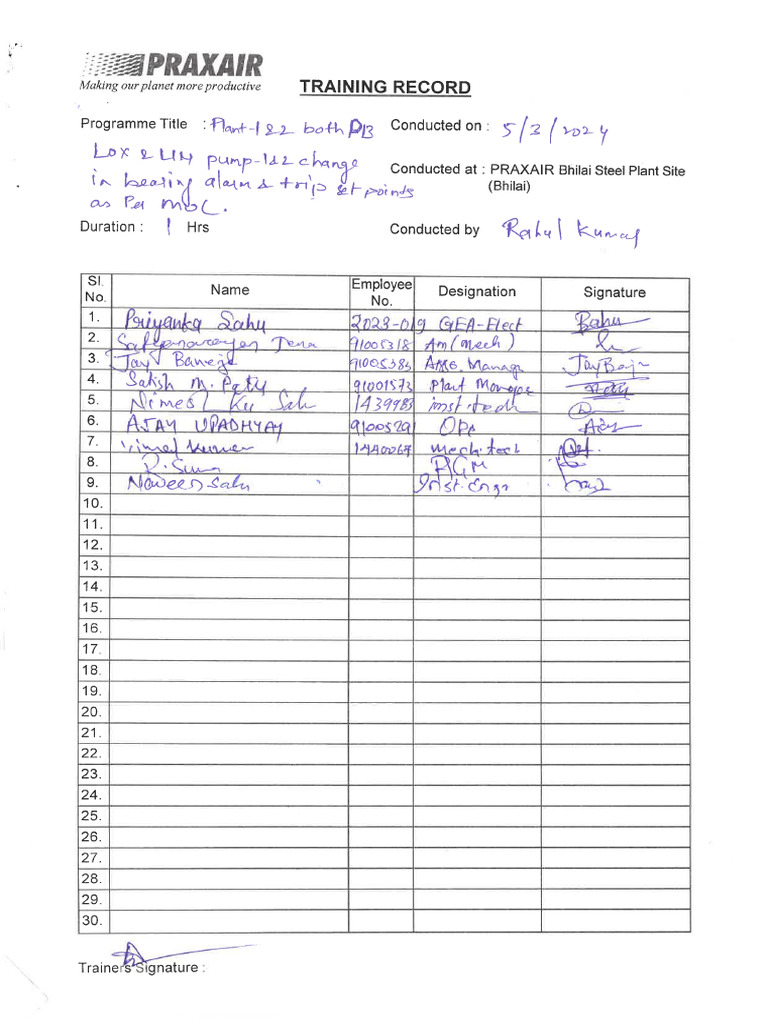 PRAXAIR
Making our planet more productive
TRAINING RECORD
Programme Title : Plant-1&2 both DB
Conducted on : 5/3/2024
LOX & LIN pump-1&2 change
in bearing alarm & trip set points
as Per MOC.
Conducted at : PRAXAIR Bhilai Steel Plant Site
(Bhilai)
Duration : 1 Hrs
Conducted by Rahul Kumar
Sl. No. Name Employee No. Designation Signature
1. Priyanka Sahu 2023-019 GEA-Elect
2. Satyanarayan Jena 91005318 Am (Mech)
3. Jay Banerje 91005384 Manag
4. Satish M. 91001573 Plant Manager
5. Nimesh Ku Sah 1439983 inst. tech
6. AJAY UPADHYAY 9100529
7. Vimal Kumar 14A0067 mech. tech
8.
9. Naveen Sahu Inst. Engr
10.
11.
12.
13.
14.
15.
16.
17.
18.
19.
20.
21.
22.
23.
24.
25.
26.
27.
28.
29.
30.
Trainers Signature :